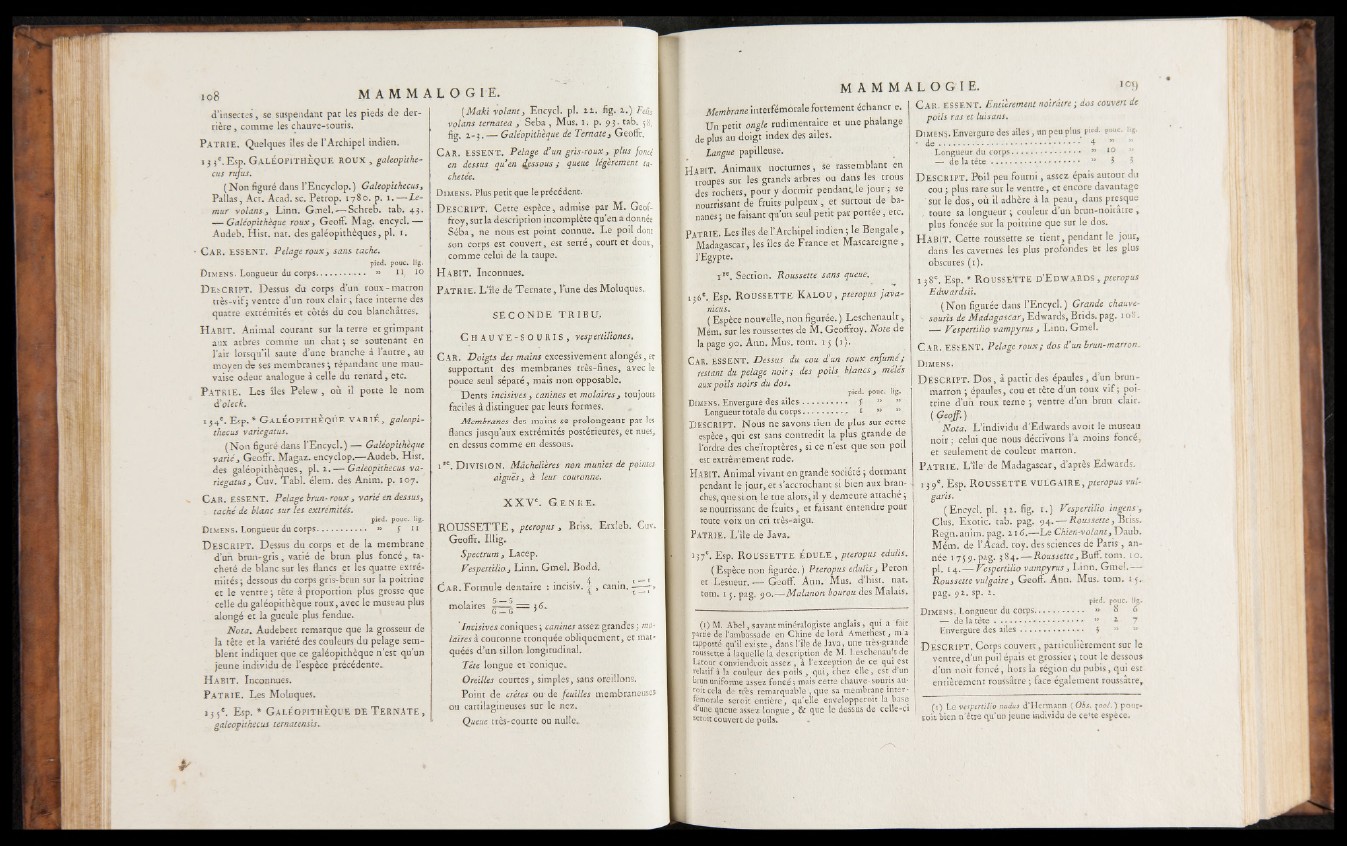 108 MAMMALOGIE.
d'insectes, se suspendant par les pieds de der-
rière, comme les chauve-souris.
PATRIE. Quelques îles de l'Archipel indien.
133e. Esp. GALÉOPITHÈQUE ROUX, galeopithe-
cus rufus.
(Non figuré dans l'Encyclop.) Galeopithecus,
Pallas, Act. Acad. sc. Petrop. 1780. p. 1. — Le-
mur volans, Linn. Gmel. — Schreb. tab. 43.
— Galéopithèque roux, Geoff. Mag. encycl. —
Audeb. Hist. nat. des galéopithèques, pl. 1.
CAR. ESSENT. Pelage roux, sans tache.
pied. pouc. lig.
DIMENS. Longueur du corps........... » 11 10
DESCRIPT. Dessus du corps d'un roux-marron
très-vif; ventre d'un roux clair; face interne des
quatre extrémités et côtés du cou blanchâtres.
HABIT. Animal courant sur la terre et grimpant
aux arbres comme un chat; se soutenant en
l'air lorsqu'il saute d'une branche à l'autre, au
moyen de ses membranes; répandant une mau-
vaise odeur analogue à celle du renard, etc.
PATRIE. Les îles Pelew, où il porte le nom
d'oleck.
134e. Esp. * GALÉOPITHÈQUE VARIÉ, galeopi-
thecus variegatus.
(Non figuré dans l'Encycl.) — Galéopithèque
varié, Geoffr. Magaz. encyclop. — Audeb. Hist.
des galéopithèques, pl. 2. — Galeopithecus va-
riegatus, Cuv. Tabl. élem. des Anim. p. 107.
CAR. ESSENT. Pelage brun-roux, varié en dessus,
taché de blanc sur les extrémités.
pied. pouc. lig.
DIMENS. Longueur du corps........... » 5 11
DESCRIPT. Dessus du corps et de la membrane
d'un brun-gris, varié de brun plus foncé, ta-
cheté de blanc sur les flancs et les quatre extré-
mités; dessous du corps gris-brun sur la poitrine
et le ventre; tête à proportion plus grosse que
celle du galéopithèque roux, avec le museau plus
alongé et la gueule plus fendue.
Nota. Audebert remarque que la grosseur de
la tête et la variété des couleurs du pelage sem-
blent indiquer que ce galéopithèque n'est qu'un
jeune individu de l'espèce précédente.
HABIT. Inconnues.
PATRIE. Les Moluques.
135e. Esp. * GALÉOPITHÈQUE DE TERNATE,
galeopithecus ternatensis.
(Maki volant, Encycl. pl. 22. fig. 2.) Felis
volans ternatea, Seba, Mus. 1. p. 93. tab. 58.
fig. 2-3. — Galéopithèque de Ternate, Geoffr.
CAR. ESSENT. Pelage d'un gris-roux, plus foncé
en dessus qu'en dessous; queue légèrement ta-
chetée.
DIMENS. Plus petit que le précédent.
DESCRIPT. Cette espèce, admise par M. Geof-
froy, sur la description incomplète qu'en a donnée
Séba, ne nous est point connue. Le poil dont
son corps est couvert, est serré, court et doux,
comme celui de la taupe.
HABIT. Inconnues.
PATRIE. L'île de Ternate, l'une des Moluques.
SECONDE TRIBU.
CHAUVE-SOURIS, vespertiliones.
CAR. Doigts des mains excessivement alongés, et
supportant des membranes très-fines, avec le
pouce seul séparé, mais non opposable.
Dents incisives, canines et molaires, toujours
faciles à distinguer par leurs formes.
Membranes des mains se prolongeant par les
flancs jusqu'aux extrémités postérieures, et nues,
en dessus comme en dessous.
1re. DIVISION. Mâchelières non munies de pointes
aiguës, à leur couronne.
XXVe. GENRE.
ROUSSETTE, pteropus, Briss. Erxleb. Cuv.
Geoffr. Illig.
Spectrum, Lacép.
Vespertilio, Linn. Gmel. Bodd.
CAR. Formule dentaire : incisiv. 4/4, canin. 1—1/1—1,
molaires 5—5/6—6 = 36.
Incisives coniques; canines assez grandes; mo-
laires à couronne tronquée obliquement, et mar-
quées d'un sillon longitudinal.
Tête longue et conique.
Oreilles courtes, simples, sans oreillons.
Point de crêtes ou de feuilles membraneuses
ou cartilagineuses sur le nez.
Queue très-courte ou nulle.
MAMMALOGIE. 109
Membrane interfémorale fortement échancrée.
Un petit ongle rudimentaire et une phalange
de plus au doigt index des ailes.
Langue papilleuse.
HABIT. Animaux nocturnes, se rassemblant en
troupes sur les grands arbres ou dans les trous
des rochers, pour y dormir pendant le jour; se
nourrissant de fruits pulpeux, et surtout de ba-
nanes; ne faisant qu'un seul petit par portée, etc.
PATRIE. Les îles de l'Archipel indien; le Bengale,
Madagascar, les îles de France et Mascareigne,
l'Egypte.
1re. Section. Roussette sans queue.
136e. Esp. ROUSSETTE KALOU, pteropus java-
nicus.
(Espèce nouvelle, non figurée.) Leschenault,
Mém. sur les roussettes de M. Geoffroy. Note de
la page 90. Ann. Mus. tom. 15 (1).
CAR. ESSENT. Dessus du cou d'un roux enfumé;
restant du pelage noir; des poils blancs, mêlés
aux poils noirs du dos.
pied. pouc. lig.
DIMENS. Envergure des ailes.......... 5 » »
Longueur totale du corps.......... 1 » »
DESCRIPT. Nous ne savons rien de plus sur cette
espèce, qui est sans contredit la plus grande de
l'ordre des cheiroptères, si ce n'est que son poil
est extrêmement rude.
HABIT. Animal vivant en grande société; dormant
pendant le jour, et s'accrochant si bien aux bran-
ches, que si on le tue alors, il y demeure attaché;
se nourrissant de fruits, et faisant entendre pour
toute voix un cri très-aigu.
PATRIE. L'île de Java.
137e. Esp. ROUSSETTE ÉDULE, pteropus edulis.
(Espèce non figurée.) Pteropus edulis, Peron
et Lesueur. — Geoff. Ann. Mus. d'hist. nat.
tom. 15. pag. 90. — Malanon bourou des Malais.
(1) M. Abel, savant minéralogiste anglais, qui a fait
partie de l'ambassade en Chine de lord Amerhest, m'a
rapporté qu'il existe, dans l'île de Java, une très-grande
roussette à laquelle la description de M. Leschenault de
Latour conviendroit assez, à l'exception de ce qui est
relatif à la couleur des poils, qui, chez elle, est d'un
brun uniforme assez foncé; mais cette chauve-souris au-
roit cela de très remarquable, que sa membrane inter-
fémorale seroit entière, qu'elle envelopperoit la base
d'une queue assez longue, & que le dessus de celle-ci
seroit couvert de poils.
CAR. ESSENT. Entièrement noirâtre; dos couvert de
poils ras et luisans.
DIMENS. Envergure des ailes, un peu plus pied. pouc. lig.
de................................ 4 » »
Longueur du corps................ » 10 »
— de la tête.................... » 3 3
DESCRIPT. Poil peu fourni, assez épais autour du
cou; plus rare sur le ventre, et encore davantage
sur le dos, où il adhère à la peau, dans presque
toute sa longueur; couleur d'un brun-noirâtre,
plus foncée sur la poitrine que sur le dos.
HABIT. Cette roussette se tient, pendant le jour,
dans les cavernes les plus profondes et les plus
obscures (1).
138e. Esp. * ROUSSETTE D'EDWARDS, pteropus
Edwardsii.
(Non figurée dans l'Encycl.) Grande chauve-
souris de Madagascar, Edwards, Brids. pag. 108.
— Vespertilio vampyrus, Linn. Gmel.
CAR. ESSENT. Pelage roux; dos d'un brun-marron.
DIMENS.
DESCRIPT. Dos, à partir des épaules, d'un brun-
marron; épaules, cou et tête d'un roux vif; poi-
trine d'un roux terne; ventre d'un brun clair.
(Geoff.)
Nota. L'individu d'Edwards avoit le museau
noir; celui que nous décrivons l'a moins foncé,
et seulement de couleur marron.
PATRIE. L'île de Madagascar, d'après Edwards.
139e. Esp. ROUSSETTE VULGAIRE, pteropus vul-
garis.
(Encycl. pl. 32. fig. 1.) Vespertilio ingens,
Clus. Exotic. tab. pag. 94. — Roussette, Briss.
Regn. anim. pag. 216. — Le Chien-volant, Daub.
Mém. de l'Acad. roy. des sciences de Paris, an-
née 1759. pag. 384. — Roussette, Buff. tom. 10.
pl. 14. — Vespertilio vampyrus, Linn. Gmel. —
Roussette vulgaire, Geoff. Ann. Mus. tom. 15.
pag. 92. sp. 2.
pied. pouc. lig.
DIMENS. Longueur du corps............ » 8 6
— de la tête.................... » 2 7
Envergure des ailes.............. 3 » »
DESCRIPT. Corps couvert, particulièrement sur le
ventre, d'un poil épais et grossier; tout le dessous
d'un noir foncé, hors la région du pubis, qui est
entièrement roussâtre; face également roussâtre,
(1) Le vespertilio nudus d'Hermann (Obs. zool.) pour-
roit bien n'être qu'un jeune individu de cette espèce.